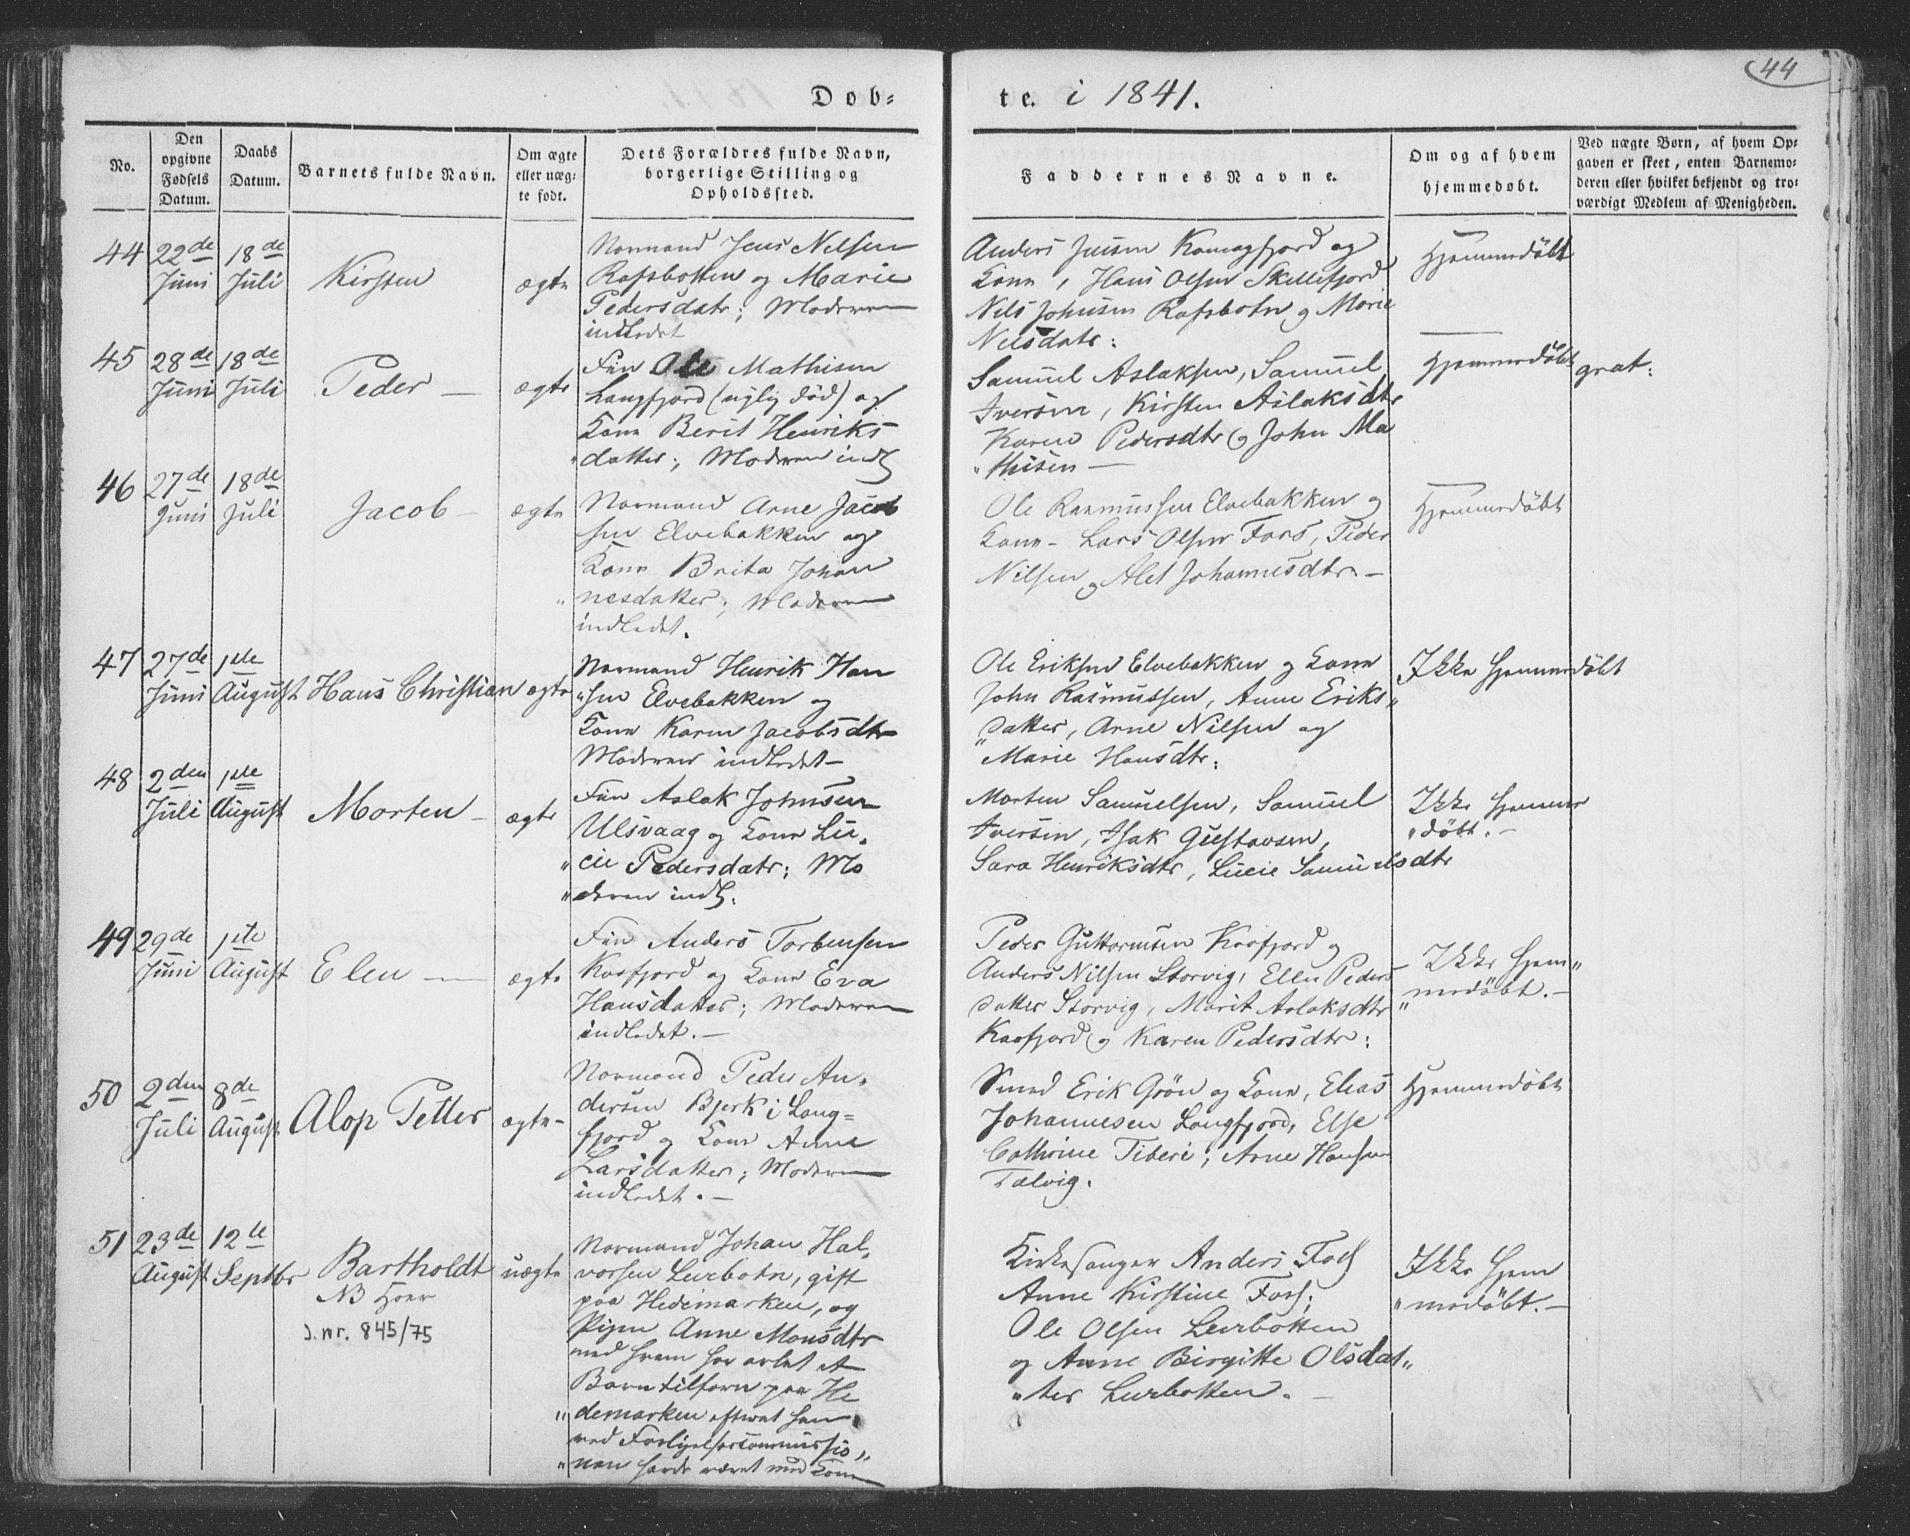 44
Døb=
te. i 1841.
No.
Den
opgivne
Fødsels
Datum.
Daabs
Datum.
Barnets fulde Navn.
Om ægte
eller uæg-
te født.
Dets Forældres fulde Navn,
borgerlige Stilling og
Opholdssted.
Faddernes Navne.
Om og af hvem
hjemmedøbt.
Ved uægte Børn, af hvem Op-
gaven er skeet, enten Barnemo-
deren eller hvilket bekjendt og tro-
værdigt Medlem af Menigheden.
44
22de
Juni
18de
Juli
Kirsten
ægte
Normand Jens Nilsen
Rafsbotten og Marie
Pedersdatr; Moderen
indledet
Anders Jensen Komagfjord og
Kone, Hans Olsen Skillefjord
Nils Johnsen Rafsbotn og Marie
Nilsdatr:
Hjemmedøbt
45
28de
Juni
18de
Juli
Peder —
ægte
Fin Ole Mathisen
Langfjord (nylig død) og
Kone Berit Henriks
"datter; Moderen indl
Samuel Aslaksen, Samuel
Iversen, Kirsten Aslaksdtr
Karen Pedersdtr og John Ma
"thisen —
Hjemmedøbt
grat:
46
27de
Juni
18de
Juli
Jacob —
ægte
Normand Arne Jacob
sen Elvebakken og
Kone Brita Johan
"nesdatter; Moderen
indledet.
Ole Rasmussen Elvebakken og
Kone — Lars Olsen Fors, Peder
Nilsen og Alet Johannesdtr. —
Hjemmedøbt
47
27de
Juni
1ste
August
Hans Christian
ægte
Normand Henrik Han
"sen Elvebakken og
Kone Karen Jacobsdtr
Moderen indledet —
Ole Eriksen Elvebakken og Kone
John Rasmussen, Anne Eriks"
"datter, Arne Nilsen og
Marie Hansdtr:
Ikke Hjemmedøbt
48
2den
Juli
1ste
August
Morten —
ægte
Fin Aslak Johnsen
Ulsvaag og Kone Lu-
"cie Pedersdatr; Mo
"deren indl.
Morten Samuelsen, Samuel
Iversen, Isak Gustavsen,
Sara Henriksdtr, Lucie Samuelsdtr
Ikke Hjemme
"døbt. —
49
29de
Juni
1ste
August
Elen —
ægte
Fin Anders Torbensen
Kaafjord og Kone Eva
Hansdatter; Moderen
indledet. —
Peder Guttormsen Kaafjord og
Anders Nilsen Storvig, Ellen Peders
datter Storvig, Marit Aslaksdtr
Kaafjord og Karen Pedersdtr:
Ikke Hjem"
"medøbt. —
50
2den
Juli
8de
August
Alop Petter
ægte —
Normand Peder An-
dersen Bjerk i Lang=
fjord og Kone Anne
Larsdatter; Moderen
indledet. —
Smed Erik Grön og Kone, Elias
Johannesen Langfjord, Else
Cathrine Tiberi; Arne Hansen
Talvig.
Hjemmedøbt
51
23de
August
12te
Septbr
Bartholdt
NB Hoer
J.nr. 845/75
uægte
Normand Johan Hal-
vorsen Leerbotn, gift
paa Hedemarken, og
Pigen Anne Monsdtr
med hvem har avlet et
Barn tilforn paa He
"demarken efterat han
ved Forligelsescommissio"
"nen havde været med Kone
Kirkesanger Anders Fos
Anne Kirstine Fos;
Ole Olsen Leerbotten
og Anne Birgitte Olsdat"
"ter Leerbotten. —
Ikke Hjem
"medøbt. —